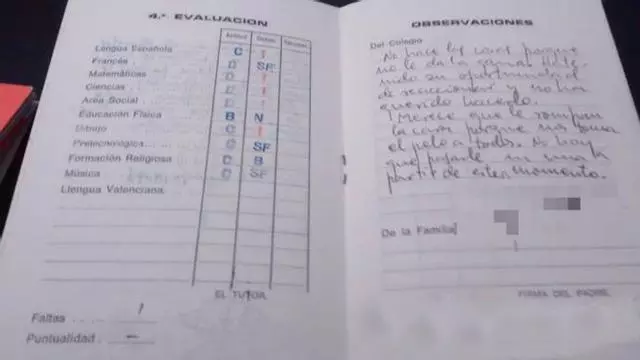 4.ª EVALUACION
Actitud
Lengua Española C I
Francés D SF
Matemáticas D I
Ciencias D I
Area Social D I
Educación Física B N
Dibujo C I
Pretecnología C SF
Formación Religiosa C B
Música C SF
Llengua Valenciana
EL TUTOR,
Faltas
Puntualidad –
OBSERVACIONES
Del Colegio
No hace las cosas porque
no le da la gana. Ha te-
nido su oportunidad
de reaccionar y no ha
querido hacerlo.
¡Merece que le rompan
la cara porque nos toma
el pelo a todos. No hay
que pasarle ni una a
partir de este momento.
De la Familia
FIRMA DEL PADRE,